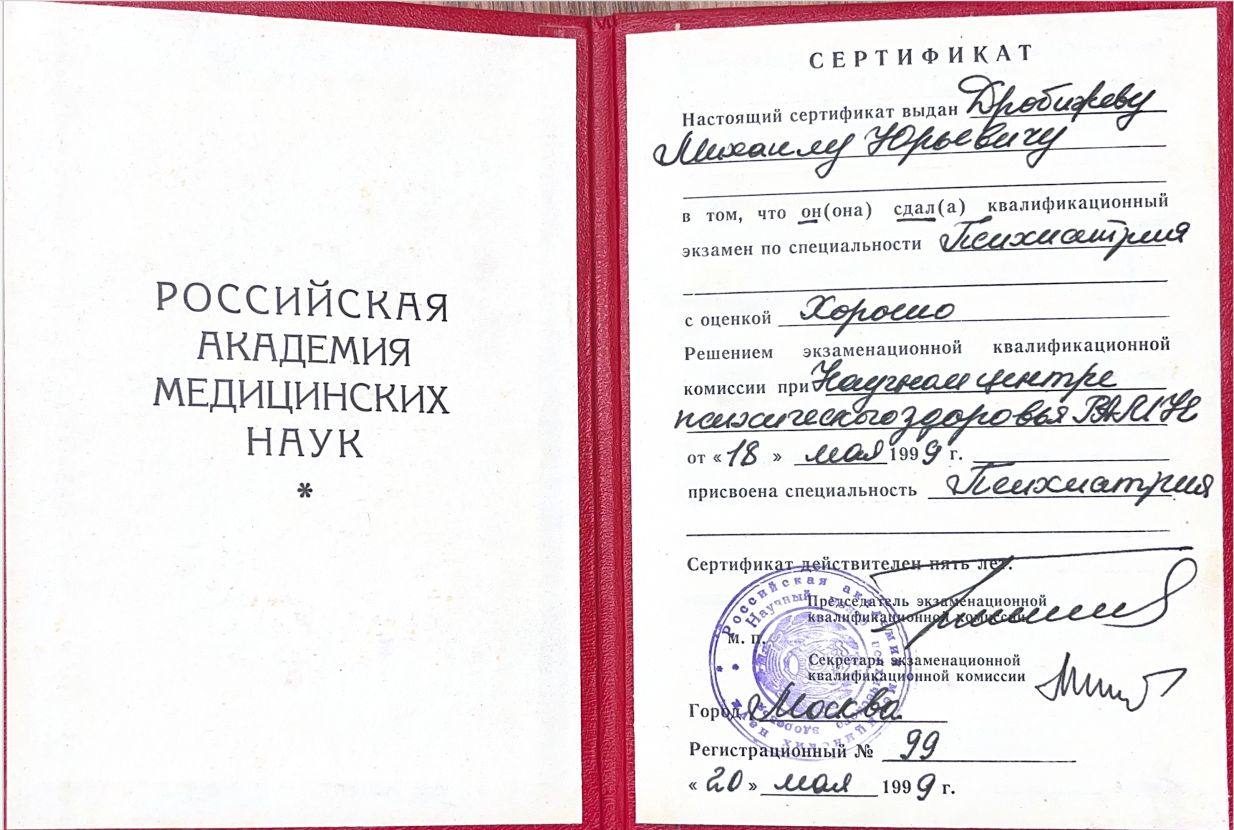 РОССИЙСКАЯ
АКАДЕМИЯ
МЕДИЦИНСКИХ
НАУК
*
СЕРТИФИКАТ
Настоящий сертификат выдан Дробижеву
Михаилу Юрьевичу
в том, что он(она) сдал(а) квалификационный
экзамен по специальности Психиатрия
с оценкой Хорошо
Решением экзаменационной квалификационной
комиссии при Научном центре
психического здоровья РАМН
от «18» мая 1999 г.
присвоена специальность Психиатрия
Сертификат действителен пять лет.
Председатель экзаменационной
квалификационной комиссии
М. П.
Секретарь экзаменационной
квалификационной комиссии
Российская академия медицинских наук
Научный центр психического здоровья
Город Москва
Регистрационный № 99
«20» мая 1999 г.